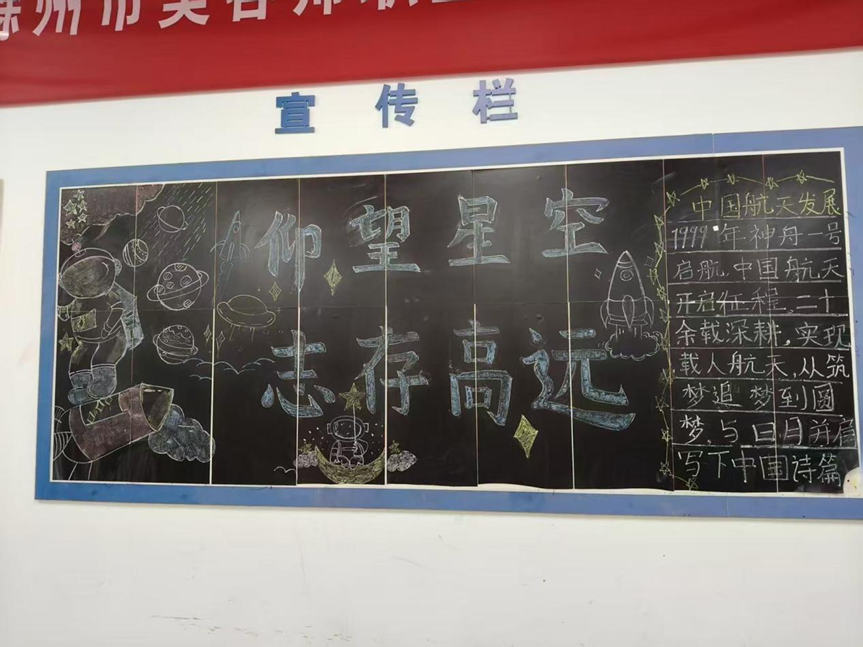 州市美容师职业
宣传栏
仰望星空
志存高远
中国航天发展
1999年神舟一号
启航,中国航天
开启征程,二十
余载深耕,实现
载人航天,从筑
梦追梦到圆
梦,与日月并肩
写下中国诗篇